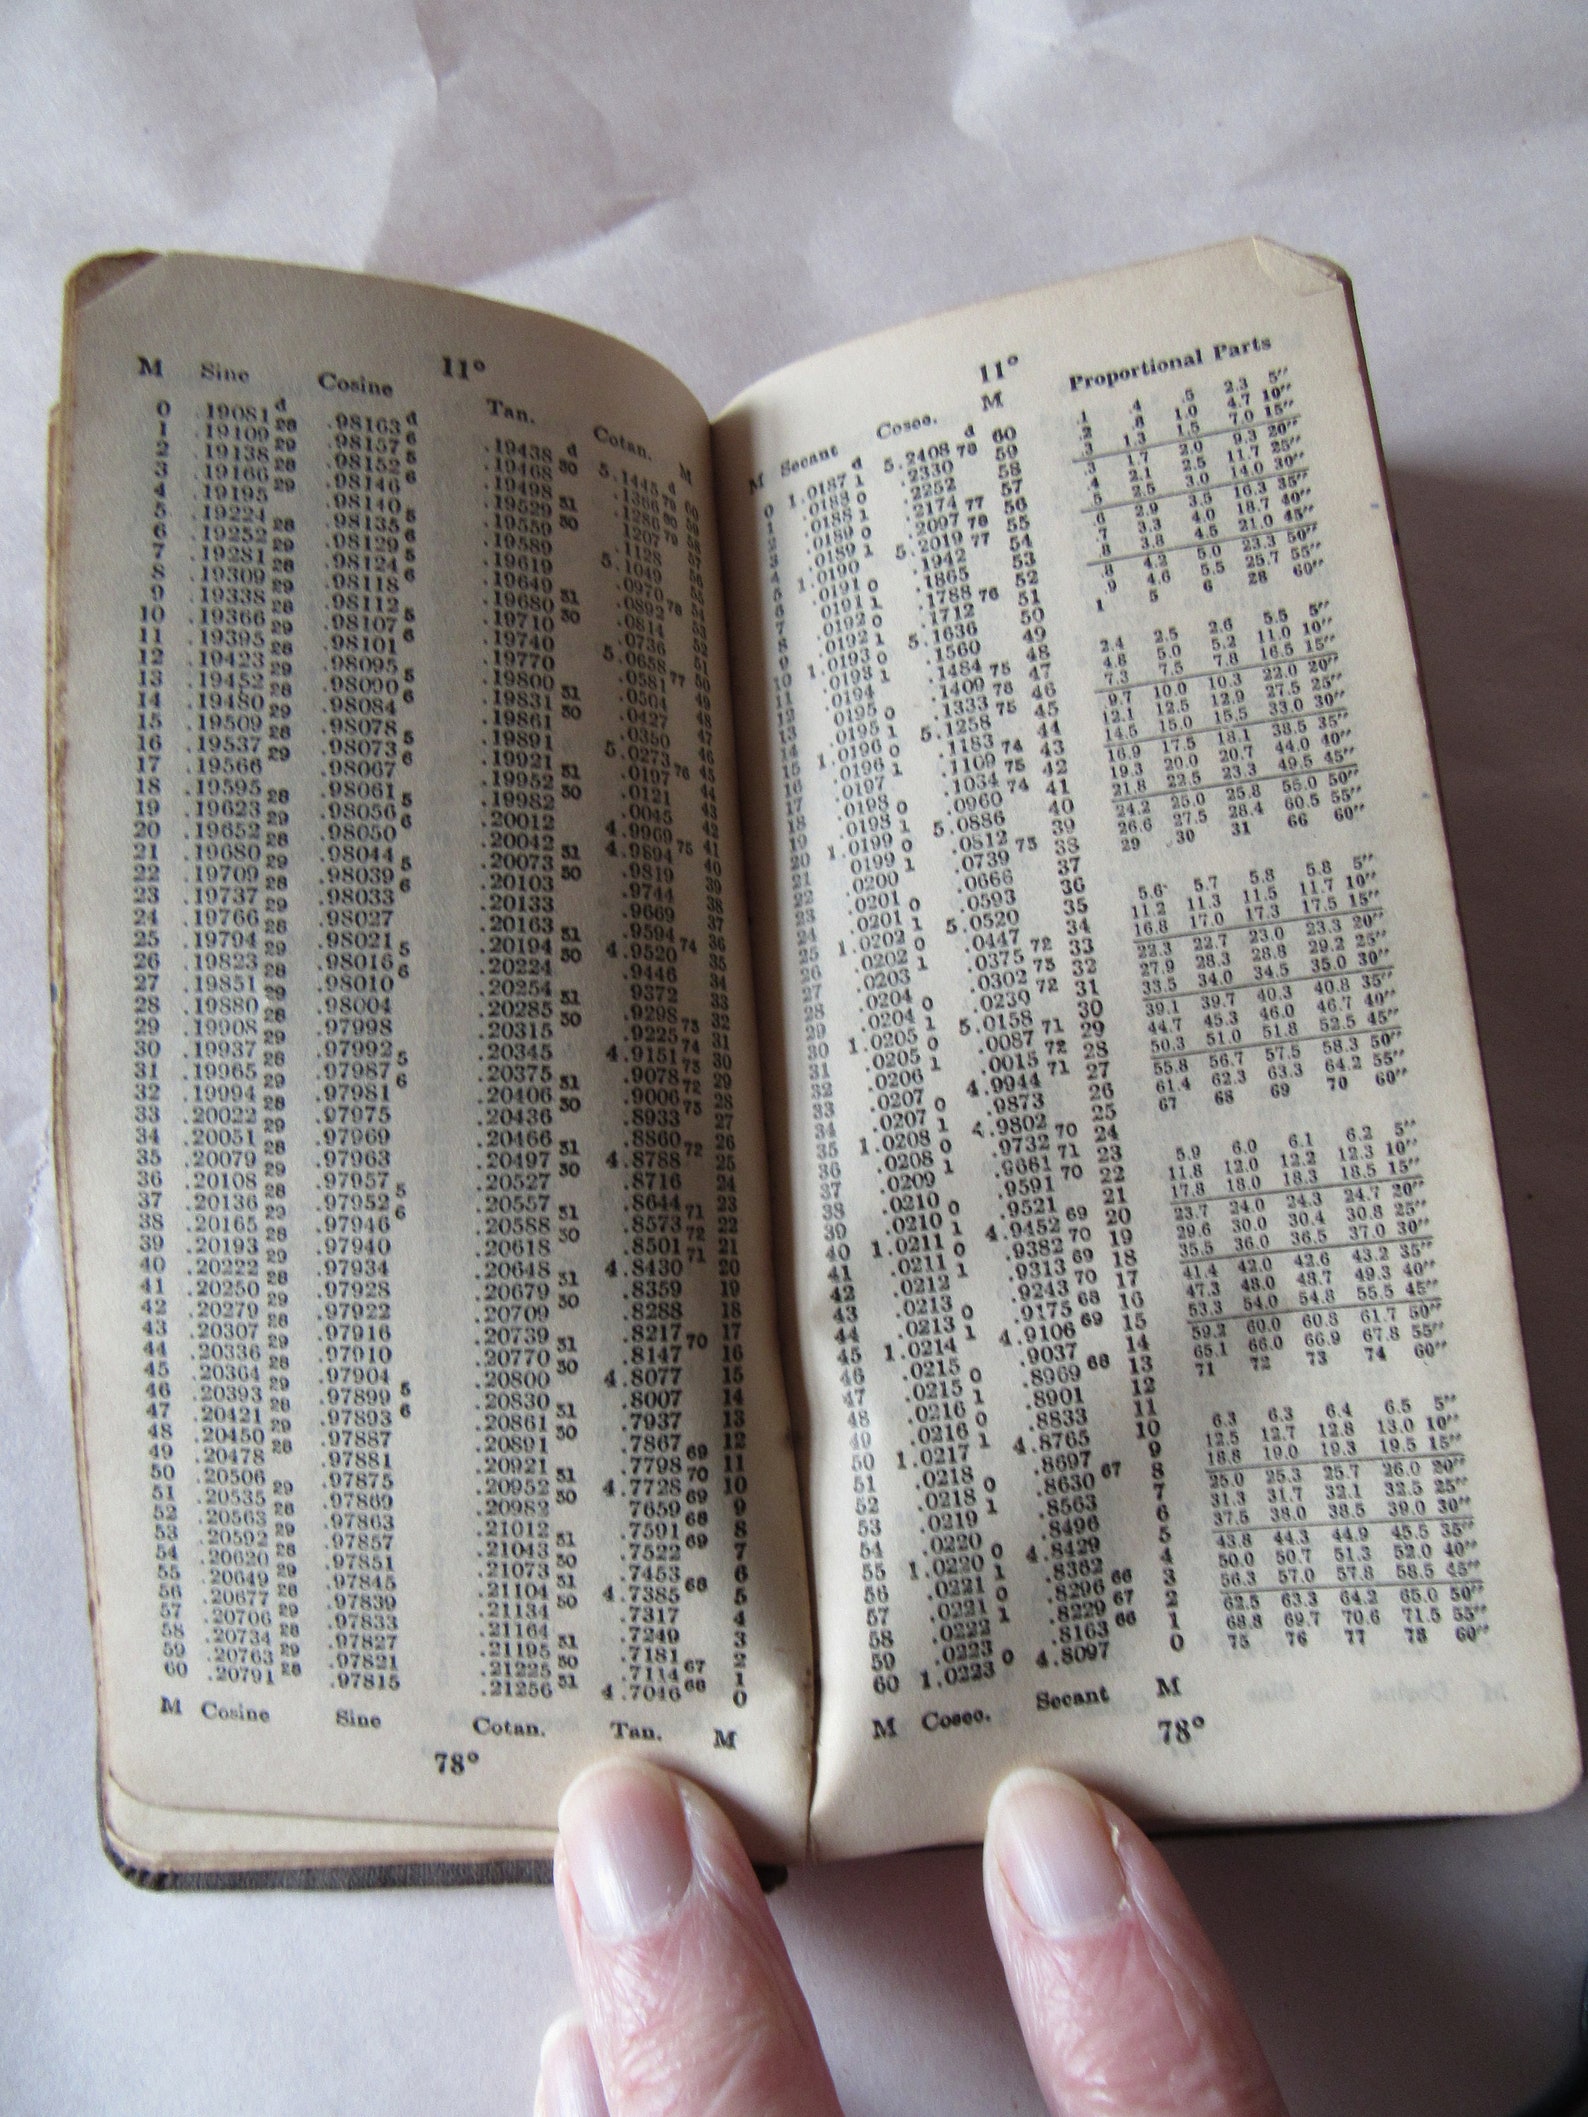 11°
M Sine Cosine Tan. Cotan. M
0 .19081 .98163 .19438 5.1445 60
1 .19109 .98157 .19468 .1366 59
2 .19138 .98152 .19498 .1286 58
3 .19166 .98146 .19529 .1207 57
4 .19195 .98140 .19559 .1128 56
5 .19224 .98135 .19589 5.1049 55
6 .19252 .98129 .19619 .0970 54
7 .19281 .98124 .19649 .0892 53
8 .19309 .98118 .19680 .0814 52
9 .19338 .98112 .19710 .0736 51
10 .19366 .98107 .19740 5.0658 50
11 .19395 .98101 .19770 .0581 49
12 .19423 .98095 .19800 .0504 48
13 .19452 .98090 .19831 .0427 47
14 .19480 .98084 .19861 .0350 46
15 .19509 .98078 .19891 5.0273 45
16 .19537 .98073 .19921 .0197 44
17 .19566 .98067 .19952 .0121 43
18 .19595 .98061 .19982 .0045 42
19 .19623 .98056 .20012 4.9969 41
20 .19652 .98050 .20042 4.9894 40
21 .19680 .98044 .20073 .9819 39
22 .19709 .98039 .20103 .9744 38
23 .19737 .98033 .20133 .9669 37
24 .19766 .98027 .20163 .9594 36
25 .19794 .98021 .20194 4.9520 35
26 .19823 .98016 .20224 .9446 34
27 .19851 .98010 .20254 .9372 33
28 .19880 .98004 .20285 .9298 32
29 .19908 .97998 .20315 .9225 31
30 .19937 .97992 .20345 4.9151 30
31 .19965 .97987 .20375 .9078 29
32 .19994 .97981 .20406 .9006 28
33 .20022 .97975 .20436 .8933 27
34 .20051 .97969 .20466 .8860 26
35 .20079 .97963 .20497 4.8788 25
36 .20108 .97957 .20527 .8716 24
37 .20136 .97952 .20557 .8644 23
38 .20165 .97946 .20588 .8573 22
39 .20193 .97940 .20618 .8501 21
40 .20222 .97934 .20648 4.8430 20
41 .20250 .97928 .20679 .8359 19
42 .20279 .97922 .20709 .8288 18
43 .20307 .97916 .20739 .8217 17
44 .20336 .97910 .20770 .8147 16
45 .20364 .97904 .20800 4.8077 15
46 .20393 .97899 .20830 .8007 14
47 .20421 .97893 .20861 .7937 13
48 .20450 .97887 .20891 .7867 12
49 .20478 .97881 .20921 .7798 11
50 .20506 .97875 .20952 4.7728 10
51 .20535 .97869 .20982 .7659 9
52 .20563 .97863 .21012 .7591 8
53 .20592 .97857 .21043 .7522 7
54 .20620 .97851 .21073 .7453 6
55 .20649 .97845 .21104 4.7385 5
56 .20677 .97839 .21134 .7317 4
57 .20706 .97833 .21164 .7249 3
58 .20734 .97827 .21195 .7181 2
59 .20763 .97821 .21225 .7114 1
60 .20791 .97815 .21256 4.7046 0
M Cosine Sine Cotan. Tan. M
78°
11°
M Secant Cosec. M
0 1.0187 5.2408 60
1 .0188 .2330 59
2 .0188 .2252 58
3 .0189 .2174 57
4 .0189 .2097 56
5 1.0190 5.2019 55
6 .0191 .1942 54
7 .0191 .1865 53
8 .0192 .1788 52
9 .0192 .1712 51
10 1.0193 5.1636 50
11 .0193 .1560 49
12 .0194 .1484 48
13 .0195 .1409 47
14 .0195 .1333 46
15 1.0196 5.1258 45
16 .0196 .1183 44
17 .0197 .1109 43
18 .0198 .1034 42
19 .0198 .0960 41
20 1.0199 5.0886 40
21 .0199 .0812 39
22 .0200 .0739 38
23 .0201 .0666 37
24 .0201 .0593 36
25 1.0202 5.0520 35
26 .0202 .0447 34
27 .0203 .0375 33
28 .0204 .0302 32
29 .0204 .0230 31
30 1.0205 5.0158 30
31 .0205 .0087 29
32 .0206 .0015 28
33 .0207 4.9944 27
34 .0207 .9873 26
35 1.0208 4.9802 25
36 .0208 .9732 24
37 .0209 .9661 23
38 .0210 .9591 22
39 .0210 .9521 21
40 1.0211 4.9452 20
41 .0211 .9382 19
42 .0212 .9313 18
43 .0213 .9243 17
44 .0213 .9175 16
45 1.0214 4.9106 15
46 .0215 .9037 14
47 .0215 .8969 13
48 .0216 .8901 12
49 .0216 .8833 11
50 1.0217 4.8765 10
51 .0218 .8697 9
52 .0218 .8630 8
53 .0219 .8563 7
54 .0220 .8496 6
55 1.0220 4.8429 5
56 .0221 .8362 4
57 .0221 .8296 3
58 .0222 .8229 2
59 .0223 .8163 1
60 1.0223 4.8097 0
M Cosec. Secant M
78°
Proportional Parts
.1 .4 .5 2.3 5″
.2 .8 1.0 4.7 10″
.3 1.3 1.5 7.0 15″
.3 1.7 2.0 9.3 20″
.4 2.1 2.5 11.7 25″
.5 2.5 3.0 14.0 30″
.6 2.9 3.5 16.3 35″
.7 3.3 4.0 18.7 40″
.8 3.8 4.5 21.0 45″
.8 4.2 5.0 23.3 50″
.9 4.6 5.5 25.7 55″
1 5 6 28 60″
2.4 2.5 2.6 5.5 5″
4.8 5.0 5.2 11.0 10″
7.3 7.5 7.8 16.5 15″
9.7 10.0 10.3 22.0 20″
12.1 12.5 12.9 27.5 25″
14.5 15.0 15.5 33.0 30″
16.9 17.5 18.1 38.5 35″
19.3 20.0 20.7 44.0 40″
21.8 22.5 23.3 49.5 45″
24.2 25.0 25.8 55.0 50″
26.6 27.5 28.4 60.5 55″
29 30 31 66 60″
5.6 5.7 5.8 5.8 5″
11.2 11.3 11.5 11.7 10″
16.8 17.0 17.3 17.5 15″
22.3 22.7 23.0 23.3 20″
27.9 28.3 28.8 29.2 25″
33.5 34.0 34.5 35.0 30″
39.1 39.7 40.3 40.8 35″
44.7 45.3 46.0 46.7 40″
50.3 51.0 51.8 52.5 45″
55.8 56.7 57.5 58.3 50″
61.4 62.3 63.3 64.2 55″
67 68 69 70 60″
5.9 6.0 6.1 6.2 5″
11.8 12.0 12.2 12.3 10″
17.8 18.0 18.3 18.5 15″
23.7 24.0 24.3 24.7 20″
29.6 30.0 30.4 30.8 25″
35.5 36.0 36.5 37.0 30″
41.4 42.0 42.6 43.2 35″
47.3 48.0 48.7 49.3 40″
53.3 54.0 54.8 55.5 45″
59.2 60.0 60.8 61.7 50″
65.1 66.0 66.9 67.8 55″
71 72 73 74 60″
6.3 6.3 6.4 6.5 5″
12.5 12.7 12.8 13.0 10″
18.8 19.0 19.3 19.5 15″
25.0 25.3 25.7 26.0 20″
31.3 31.7 32.1 32.5 25″
37.5 38.0 38.5 39.0 30″
43.8 44.3 44.9 45.5 35″
50.0 50.7 51.3 52.0 40″
56.3 57.0 57.8 58.5 45″
62.5 63.3 64.2 65.0 50″
68.8 69.7 70.6 71.5 55″
75 76 77 78 60″